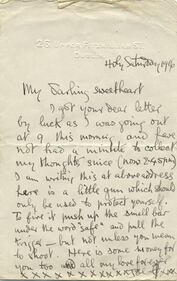 26 UPPER FITZWILLIAM ST
DUBLIN
Holy Saturday 1916
My Darling sweetheart
I got your dear letter
by luck as I was going out
at 9 this morning and have
not had a minute to collect
my thoughts since (now 2.45pm)
I am writing this at above address
here is a little gun which should
only be used to protect yourself.
To fire it push up the small bar
under the word "safe" and pull the
trigger — but not unless you mean
to shoot. Here is some money for
you too and all my love forever
x x x x x x x x x x x